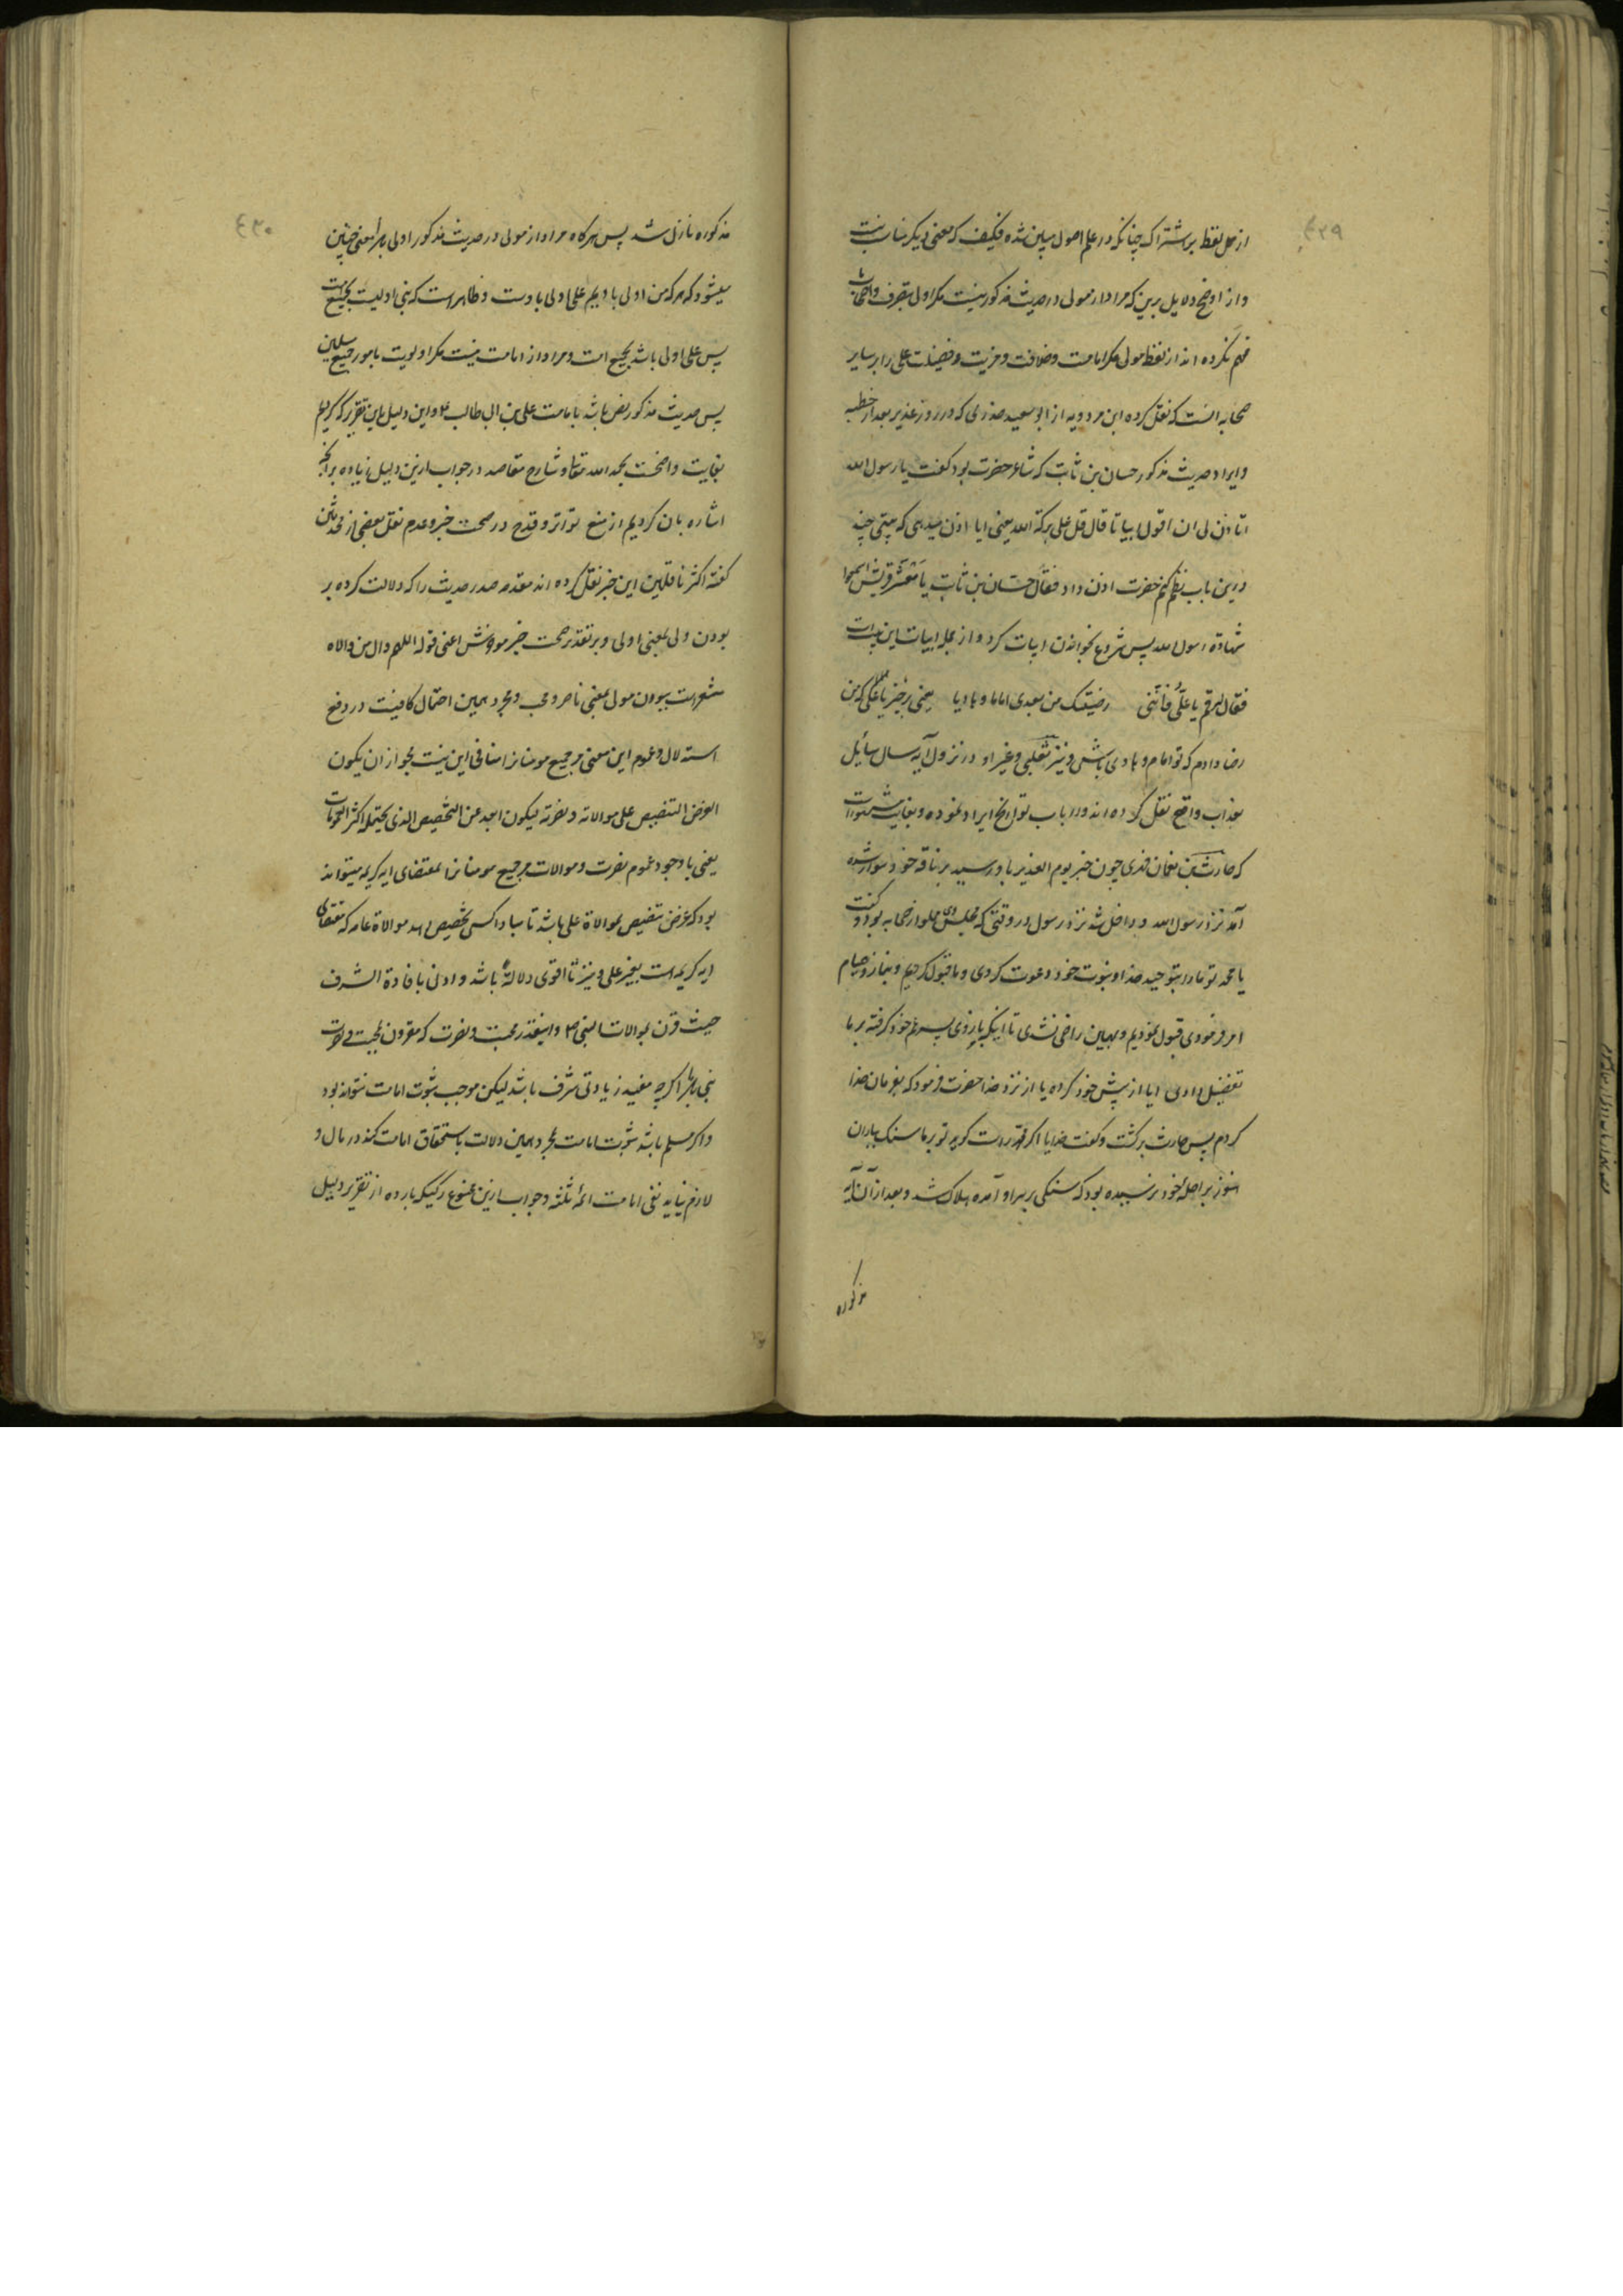 ٤٢٩
از حمل لفظ بر اشتراک چنانکه در علم اصول مبین شده فکیف که معنی دیگر مناسب نیست
و از اوضح دلایل برین که مراد از مولی در حدیث مذکور نیست مگر اولی بتصرف و اصحاب
فهم نکرده اند از لفظ مولی مگر امامت و خلافت و مزیت و فضیلت علی را بر سایر
صحابه آنست که نقل کرده ابن مردویه از ابو سعید خدری که در روز غدیر بعد از خطبه
و ایراد حدیث مذکور حسان بن ثابت که شاعر حضرت بود گفت یا رسول الله
اتاذن لی ان اقول ابیاتا قال قل علی برکة الله یعنی ایا اذن میدهی که بیتی چند
درین باب نظم کنم حضرت اذن داد فقال حسان بن ثابت یا معشر قریش اسمعوا
شهادة رسول الله پس شروع بخواندن ابیات کرد و از جمله ابیات این بیت است
فقال له قم یا علی فاننی رضیتک من بعدی اماما و هادیا یعنی برخیز یا علی که من
رضا دادم که تو امام و هادی باشی و نیز ثعلبی و غیر او در نزول آیه سال سائل
بعذاب واقع نقل کرده اند و ارباب تواریخ ایراد نموده و بغایت مشهور است
که حارث بن نعمان فهری چون خبر یوم الغدیر باو رسید بر ناقه خود سوار شده
آمد نزد رسول الله و داخل شد نزد رسول در وقتی که مجلس وی مملو از صحابه بود و گفت
یا محمد تو ما را بتوحید خدا و نبوت خود دعوت کردی و ما قبول کردیم و بنماز و صیام
امر فرمودی قبول نمودیم و بهمین راضی نشدی تا اینکه بازوی پسر عم خود گرفته بر ما
تفضیل دادی ایا از پیش خود کرده یا از نزد خدا حضرت فرمود که بفرمان خدا
کردم پس حارث برگشت و گفت خدایا اگر محمد راست گوید تو بر ما سنک بباران
هنوز براحلهٔ خود نرسیده بود که سنکی بر سر او آمده هلاک شد و بعد از آن آیه
مذکوره
٤٣٠
مذکوره نازل شد پس هرگاه مراد از مولی در حدیث مذکور اولی باشد معنی چنین
میشود که هر که من اولی باویم علی اولی باوست و ظاهر است که نبی اولیست بجمیع امت
پس علی اولی باشد بجمیع امت و مراد از امامت نیست مگر اولویت بامور جمیع مسلمین
پس حدیث مذکور نص باشد بامامت علی بن ابی طالب ع و این دلیل باین تقریر که کردیم
بغایت واضحست بحمد الله تعالی و شارح مقاصد در جواب ازین دلیل زیاده بر آنچه
اشاره بان کردیم از منع تواتر و قدح در صحت خبر و عدم نقل بعضی از محدثین
گفته اکثر ناقلین این خبر نقل نکرده اند مقدمه صدر حدیث را که دلالت کرده بر
بودن ولی بمعنی اولی و بر تقدیر صحت خبر موخرش اعنی قوله اللهم وال من والاه
مشعر است ببودن مولی بمعنی ناصر و محب و مجرد همین احتمال کافیست در دفع
استدلال و عموم این معنی مر جمیع مومنانرا منافی این نیست بجواز ان یکون
الغرض التنصیص علی موالاته و نصرته لیکون ابعد عن التخصیص الذی یحتمله اکثر العمومات
یعنی با وجود عموم نصرت و موالات مر جمیع مومنانرا بمقتضای ایه کریمه میتواند
بود که غرض تنصیص بموالاة علی باشد تا مبادا کسی تخصیص دهد موالاة عامه که مقتضای
ایه کریمه است بغیر علی و نیز تا اقوی دلالة باشد و اوفی بافادة الشرف
حیث قرن بموالات النبی ص و اینقدر محبت و نصرت که مقرون بمحبت و نصرت
نبی باشد اگر چه مفید زیادتی شرف باشد لیکن موجب ثبوت امامت نتواند بود
و اگر مسلم باشد ثبوت امامت بمجرد همین دلالت باستحقاق امامت کند در مال و
لازم نیاید نفی امامت ائمهٔ ثلثه و جواب ازین منوع رکیکه بارده از تقریر دلیل